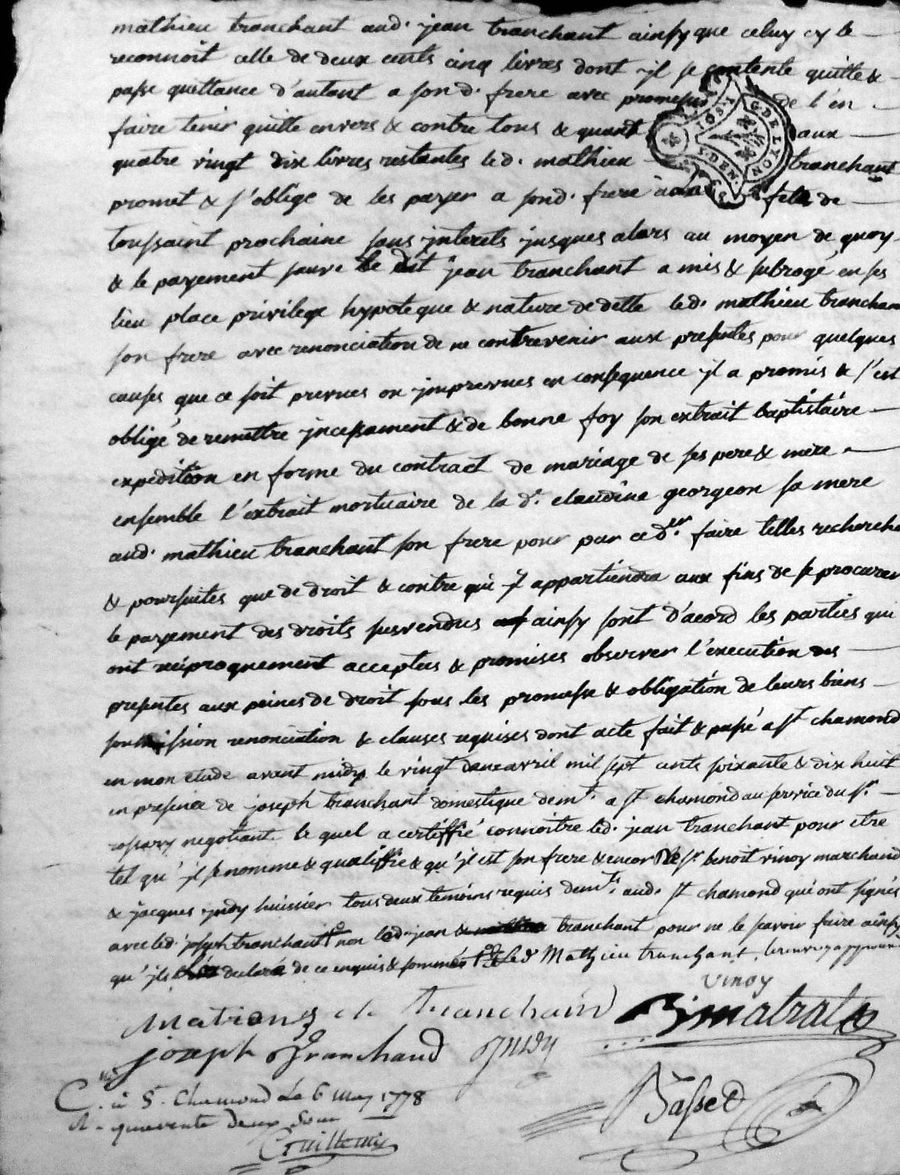 mathieu tranchant aud. jean tranchant ainsy que celuy cy le
reconnoit celle de deux cents cinq livres dont il se contente quitte &
passe quittance d'autant a son d. frere avec promesse de l'en
faire tenir quitte envers & contre tous & quant aux
quatre vingt dix livres restantes led. mathieu tranchant
promet & s'oblige de les payer a sond. frere fete de
toussaint prochaine sans interets jusques alors au moyen de quoy
& le payement sauvé le dit jean tranchant a mis & subrogé en ses
lieu place privilege hypoteque & nature de dette led. mathieu tranchant
son frere avec renonciation de ne contrevenir aux presentes pour quelques
causes que ce soit prevues ou imprevues en consequence il a promis & s'est
obligé de remettre incessament & de bonne foy son extrait baptistaire
expedition en forme du contract de mariage de ses pere & mere
ensemble l'extrait mortuaire de la d. claudine georgeon sa mere
aud. mathieu tranchant son frere pour par ce d.er faire telles recherches
& poursuites que de droit & contre qui il appartiendra aux fins de se procurer
le payement des droits susvendus ainsy sont d'acord les parties qui
ont reciproquement acceptés & promises observer l'execution des
presentes aux peines de droit sous les promesse & obligation de leurs biens
soumission renonciation & clauses requises dont acte fait & passé a st chamond
en mon étude avant midy le vingt avril mil sept cents soixante & dix huit
en presence de joseph tranchant domestique dem.t a st chamond au service du sr.
negotiant lequel a certiffié connoitre led. jean tranchant pour etre
tel qu'il se nomme & qualiffie & qu'il est son frere & encor de sr. benoit vinoy marchand
& jacques judy huissier tous deux temoins requis dem.ts aud. st chamond qui ont signés
avec led. joseph tranchant non led. jean tranchant pour ne le scavoir faire ainsy
qu'ils declaré de ce enquis & sommés led Mathieu tranchant
vinoy
tranchant
joseph Tranchand judy
Bassed
C. à St. Chamond Le 6 May 1778
R. quarente deux sous
Guillemin
G. DE LYON